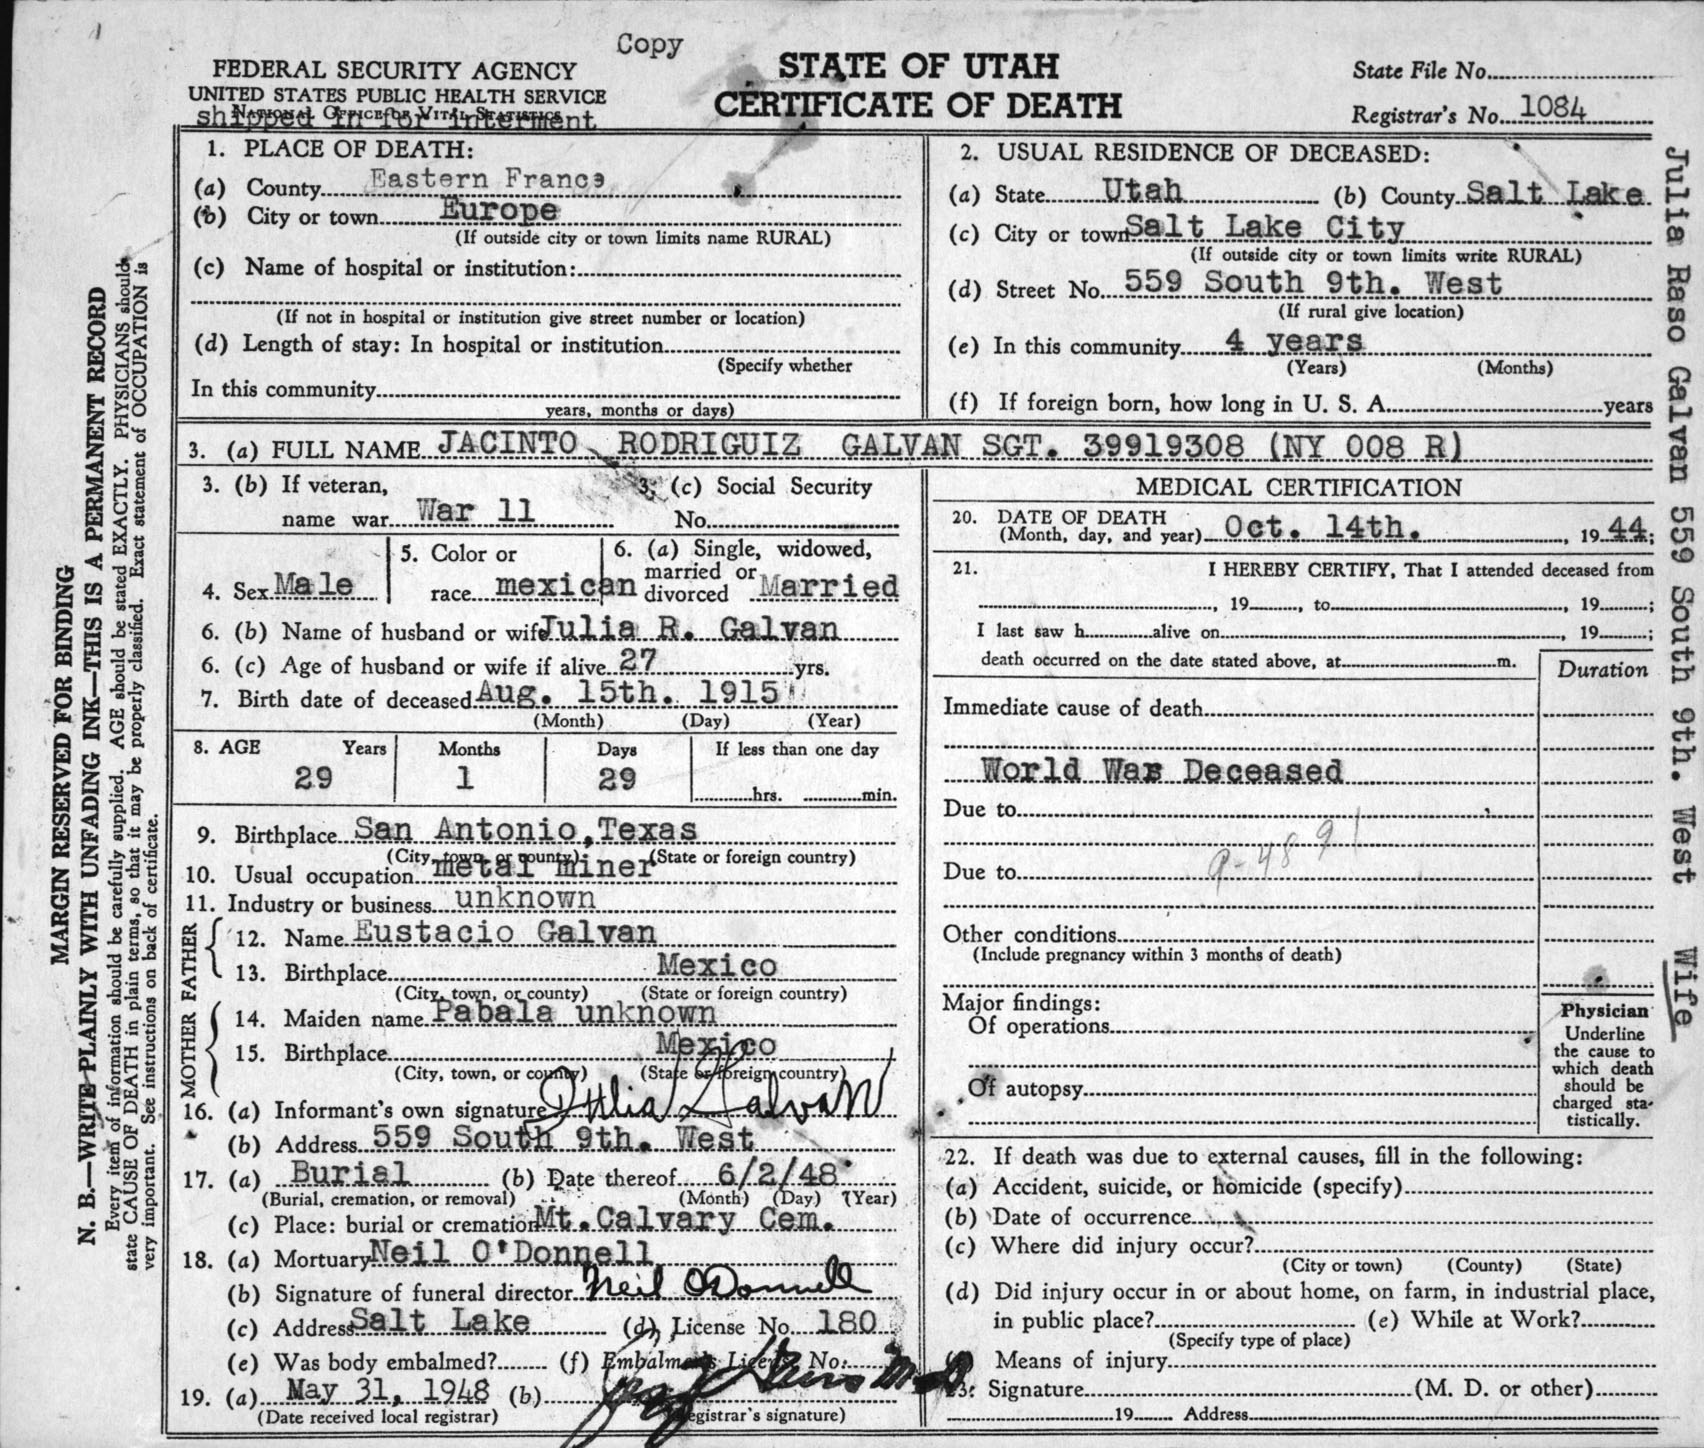 Copy
FEDERAL SECURITY AGENCY
UNITED STATES PUBLIC HEALTH SERVICE
NATIONAL OFFICE OF VITAL STATISTICS
shipped in for interment
STATE OF UTAH
CERTIFICATE OF DEATH
State File No.
Registrar's No. 1084
1. PLACE OF DEATH:
(a) County Eastern France
(b) City or town Europe
(If outside city or town limits name RURAL)
(c) Name of hospital or institution:
(If not in hospital or institution give street number or location)
(d) Length of stay: In hospital or institution
(Specify whether
In this community
years, months or days)
2. USUAL RESIDENCE OF DECEASED:
(a) State Utah (b) County Salt Lake
(c) City or town Salt Lake City
(If outside city or town limits write RURAL)
(d) Street No. 559 South 9th. West
(If rural give location)
(e) In this community 4 years
(Years) (Months)
(f) If foreign born, how long in U. S. A. years
3. (a) FULL NAME JACINTO RODRIGUIZ GALVAN SGT. 39919308 (NY 008 R)
3. (b) If veteran,
name war War 11
3. (c) Social Security
No.
4. Sex Male
5. Color or
race mexican
6. (a) Single, widowed,
married or
divorced Married
6. (b) Name of husband or wife Julia R. Galvan
6. (c) Age of husband or wife if alive 27 yrs.
7. Birth date of deceased Aug. 15th. 1915
(Month) (Day) (Year)
8. AGE Years Months Days If less than one day
29 1 29 hrs. min.
9. Birthplace San Antonio, Texas
(City, town, or county) (State or foreign country)
10. Usual occupation metal miner
11. Industry or business unknown
FATHER
12. Name Eustacio Galvan
13. Birthplace Mexico
(City, town, or county) (State or foreign country)
MOTHER
14. Maiden name Pabala unknown
15. Birthplace Mexico
(City, town, or county) (State or foreign country)
16. (a) Informant's own signature Julia Galvan
(b) Address 559 South 9th. West
17. (a) Burial (b) Date thereof 6/2/48
(Burial, cremation, or removal) (Month) (Day) (Year)
(c) Place: burial or cremation Mt. Calvary Cem.
18. (a) Mortuary Neil O'Donnell
(b) Signature of funeral director Neil O'Donnell
(c) Address Salt Lake (d) License No. 180
(e) Was body embalmed? (f) Embalmer's License No.
19. (a) May 31, 1948 (b) M.D.
(Date received local registrar) (Registrar's signature)
MEDICAL CERTIFICATION
20. DATE OF DEATH
(Month, day, and year) Oct. 14th. , 19 44;
21. I HEREBY CERTIFY, That I attended deceased from
, 19 , to , 19 ;
I last saw h alive on , 19 ;
death occurred on the date stated above, at m.
Duration
Immediate cause of death
World War Deceased
Due to
Due to
9-4891
Other conditions
(Include pregnancy within 3 months of death)
Major findings:
Of operations
Of autopsy
Physician
Underline
the cause to
which death
should be
charged sta-
tistically.
22. If death was due to external causes, fill in the following:
(a) Accident, suicide, or homicide (specify)
(b) Date of occurrence
(c) Where did injury occur?
(City or town) (County) (State)
(d) Did injury occur in or about home, on farm, in industrial place,
in public place? (e) While at Work?
(Specify type of place)
Means of injury
23. Signature (M. D. or other)
19 Address
MARGIN RESERVED FOR BINDING
N. B.—WRITE PLAINLY WITH UNFADING INK—THIS IS A PERMANENT RECORD
Every item of information should be carefully supplied. AGE should be stated EXACTLY. PHYSICIANS should
state CAUSE OF DEATH in plain terms, so that it may be properly classified. Exact statement of OCCUPATION is
very important. See instructions on back of certificate.
Julia Raso Galvan 559 South 9th. West Wife